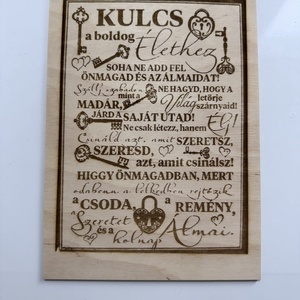 KULCS
a boldog Élethez
SOHA NE ADD FEL
ÖNMAGAD ÉS AZ ÁLMAIDAT!
Szállj szabadon mint a MADÁR,
NE HAGYD, HOGY A Világ letörje szárnyaid!
JÁRD A SAJÁT UTAD!
Ne csak létezz, hanem ÉLJ!
Csináld azt, amit SZERETSZ,
SZERESD, azt, amit csinálsz!
HIGGY ÖNMAGADBAN, MERT
odabenn a lelkedben rejtőzik
a CSODA, a REMÉNY,
a Szeretet és a holnap Álmai.